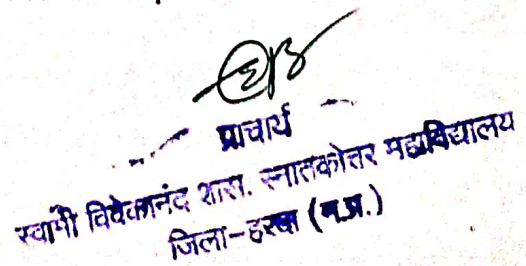 प्राचार्य
स्वामी विवेकानंद शास. स्नातकोत्तर महाविद्यालय
जिला-हरदा (म.प्र.)